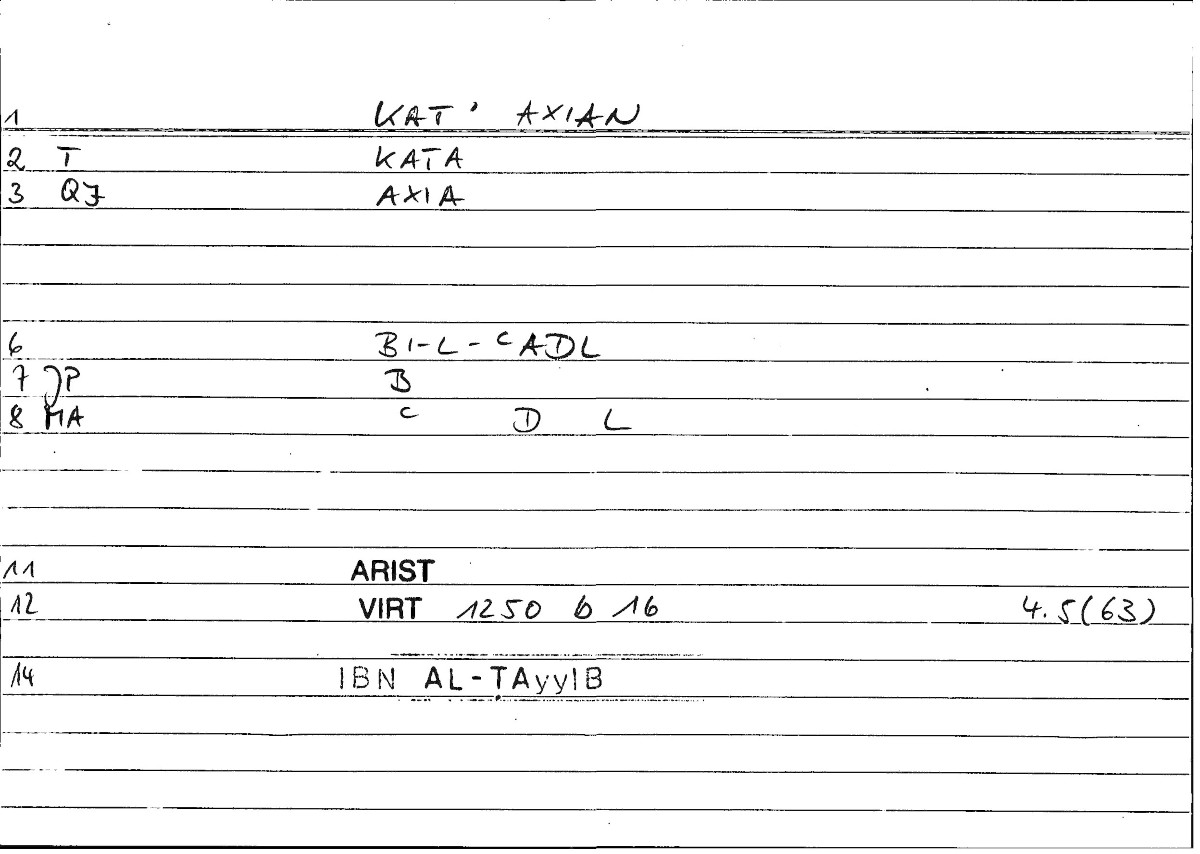 1 KAT' AXIAN
2 T KATA
3 QJ AXIA
6 BI-L-cADL
7 JP B
8 MA c D L
11 ARIST
12 VIRT 1250 b 16 4.5(63)
14 IBN AL-ṬAyyIB